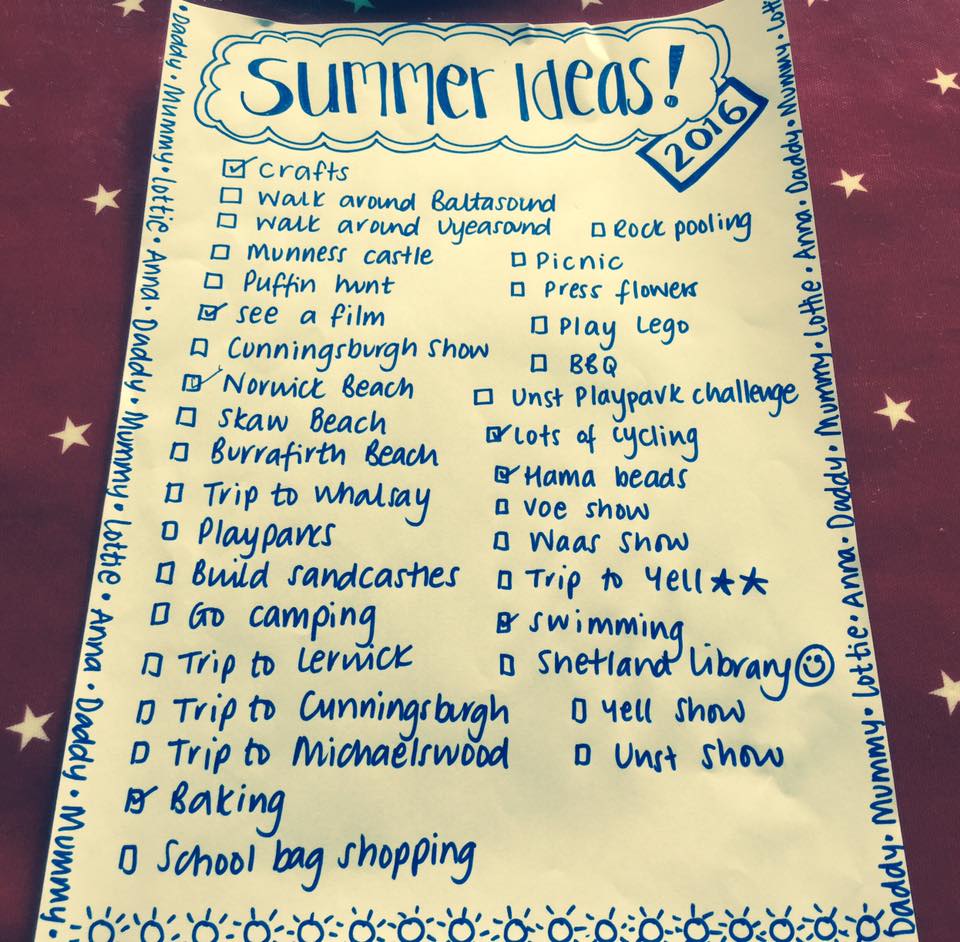 Summer Ideas!
2016
Crafts
Walk around Baltasound
Walk around Uyeasound
Munness castle
Puffin hunt
See a film
Cunningsburgh show
Norwick Beach
Skaw Beach
Burrafirth Beach
Trip to Whalsay
Playparks
Build sandcastles
Go camping
Trip to Lerwick
Trip to Cunningsburgh
Trip to Michaelswood
Baking
School bag shopping
Rock pooling
Picnic
Press flowers
Play Lego
BBQ
Unst Playpark challenge
Lots of cycling
Hama beads
Voe show
Waas show
Trip to Yell
Swimming
Shetland Library
Yell show
Unst show
Daddy • Mummy • Lottie • Anna • Daddy • Mummy • Lottie • Anna • Daddy • Mummy •
Daddy • Mummy • Lottie • Anna • Daddy • Mummy • Lottie • Anna • Daddy • Mummy • Lottie